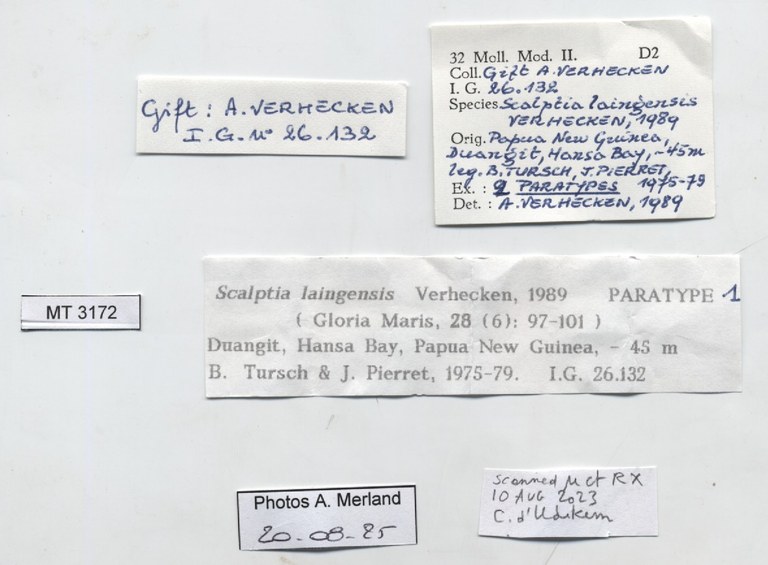 Gift : A. VERHECKEN
I.G. nº 26.132
32 Moll. Mod. II. D2
Coll. Gift A. VERHECKEN
I. G. 26.132
Species Scalptia laingensis
VERHECKEN, 1989
Orig. Papua New Guinea,
Duangit, Hansa Bay, -45m
leg. B. TURSCH, J. PIERRET,
Ex. : 2 PARATYPES 1975-79
Det. : A. VERHECKEN, 1989
MT 3172
Scalptia laingensis Verhecken, 1989 PARATYPE 1
( Gloria Maris, 28 (6): 97-101 )
Duangit, Hansa Bay, Papua New Guinea, - 45 m
B. Tursch & J. Pierret, 1975-79. I.G. 26.132
Photos A. Merland
20-08-25
Scanned µ ct RX
10 AUG 2023
C. d'Udekem